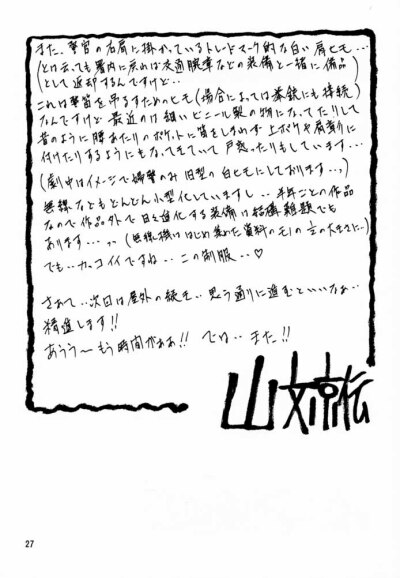 また、警官の右肩に掛かっているトレードマーク的な白い肩ヒモ…
(とは云っても署内に戻れば交通腕章などの装備と一緒に備品
として返却するんですけど…
これは警笛を吊るすためのヒモ(場合によっては拳銃にも接続)
なんですけど最近のは細いビニール製の物になってたりして
昔のように腰あたりのポケットに笛をしまわず上ポケや肩章に
付けたりするようにもなってきていて戸惑ったりもしています…
(劇中はイメージで婦警のみ旧型の白ヒモにしております…)
無線などもどんどん小型化していますし‥半年ごとの作品
なので作品外で日々進化する装備は結構難題でも
あります…‥(無線機ははじめ集めた資料のモノの½の大きさに…)
でも‥カッコイイですね‥この制服‥♡
さぁて‥次回は屋外の続き‥思う通りに進むといいなぁ‥
精進します!!
あうう〜もう時間がぁぁ!! では‥また!!
27